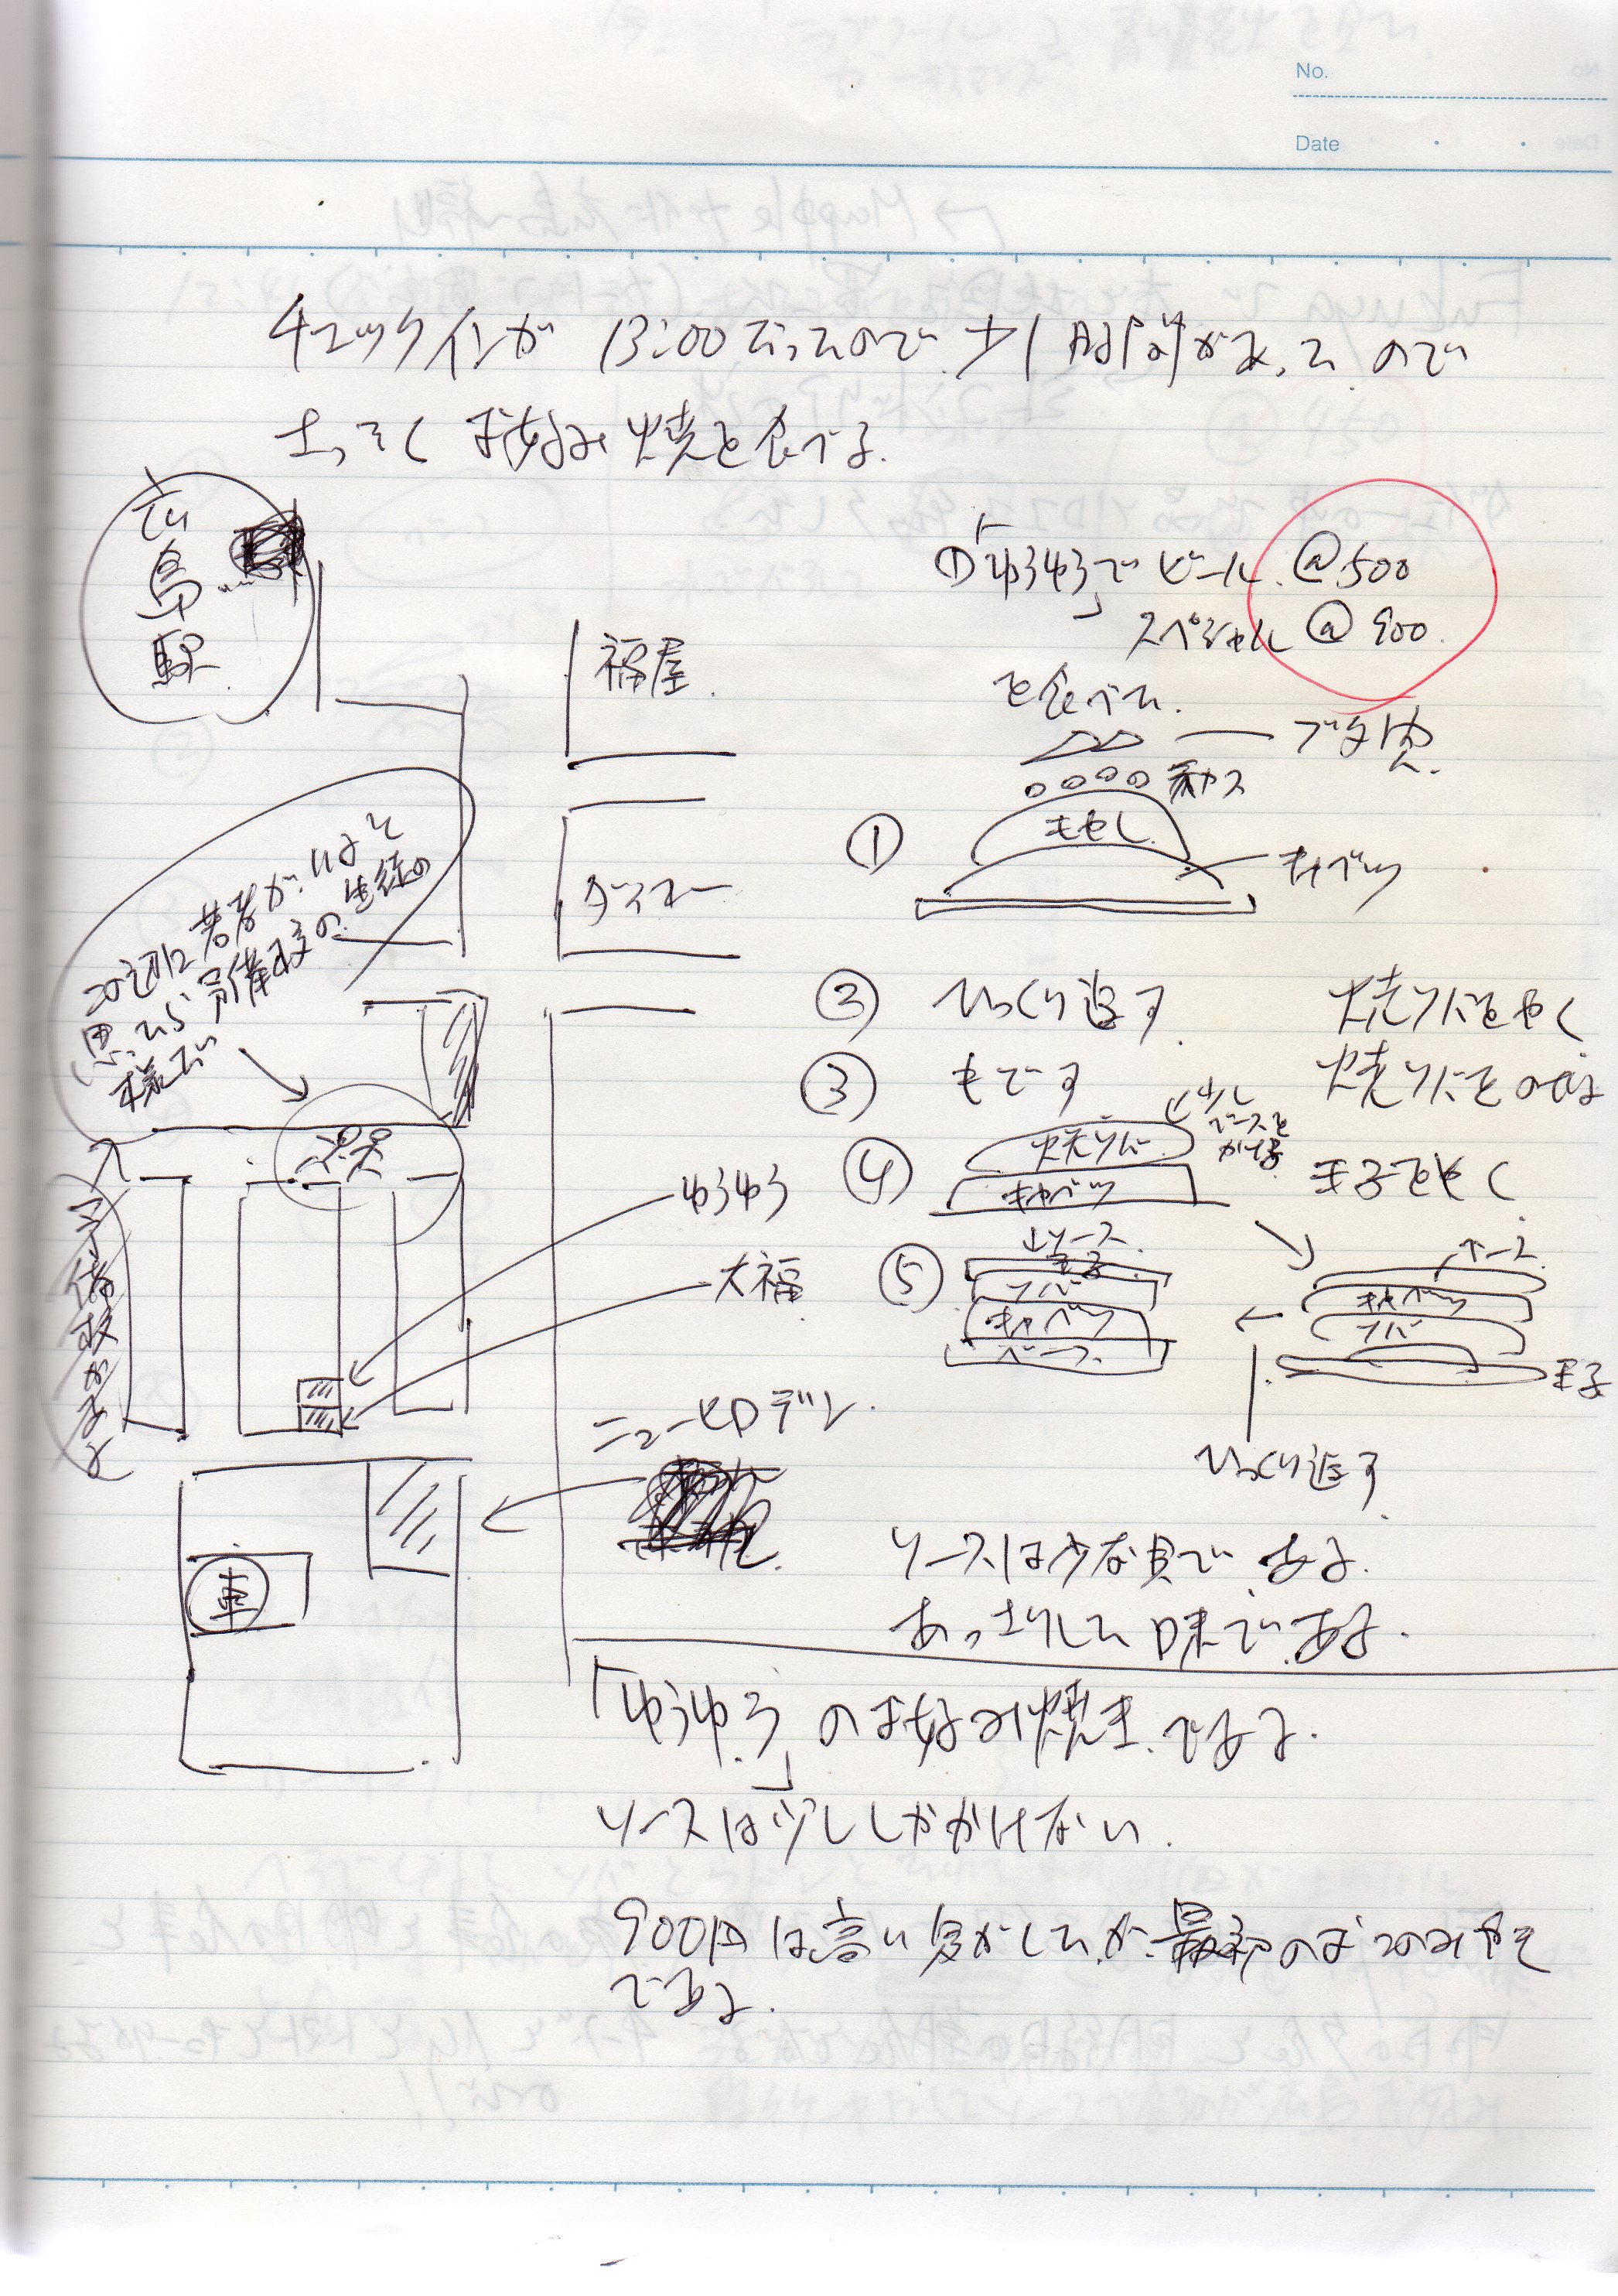 No.
Date
チェックインが 13:00だったので 少し時間があったので
さっそく お好み焼を食べる.
広島駅
福屋
ダイエー
①「ゆうゆう」で ビール @500
スペシャル @900.
を食べた.
ブタ肉
天カス
① もやし
キャベツ
② ひっくり返す 焼ソバをやく
③ もどす 焼ソバをのせる
少し
ソースを
かける
④ 焼ソバ
キャベツ
玉子をやく
⑤ ↓ソース
玉子
ソバ
キャベツ
ベース
ベース
キャベツ
ソバ
玉子
ひっくり返す
この辺に若者がいると
思ったら予備校の生徒の
様だ
予備校がある
ゆうゆう
大福
ニューヒロデン
車
ソースは少な目である.
あっさりした味である.
「ゆうゆう」のお好み焼きである.
ソースは少ししかかけない.
900円は高い気がしたが最初のおこのみやき
である.